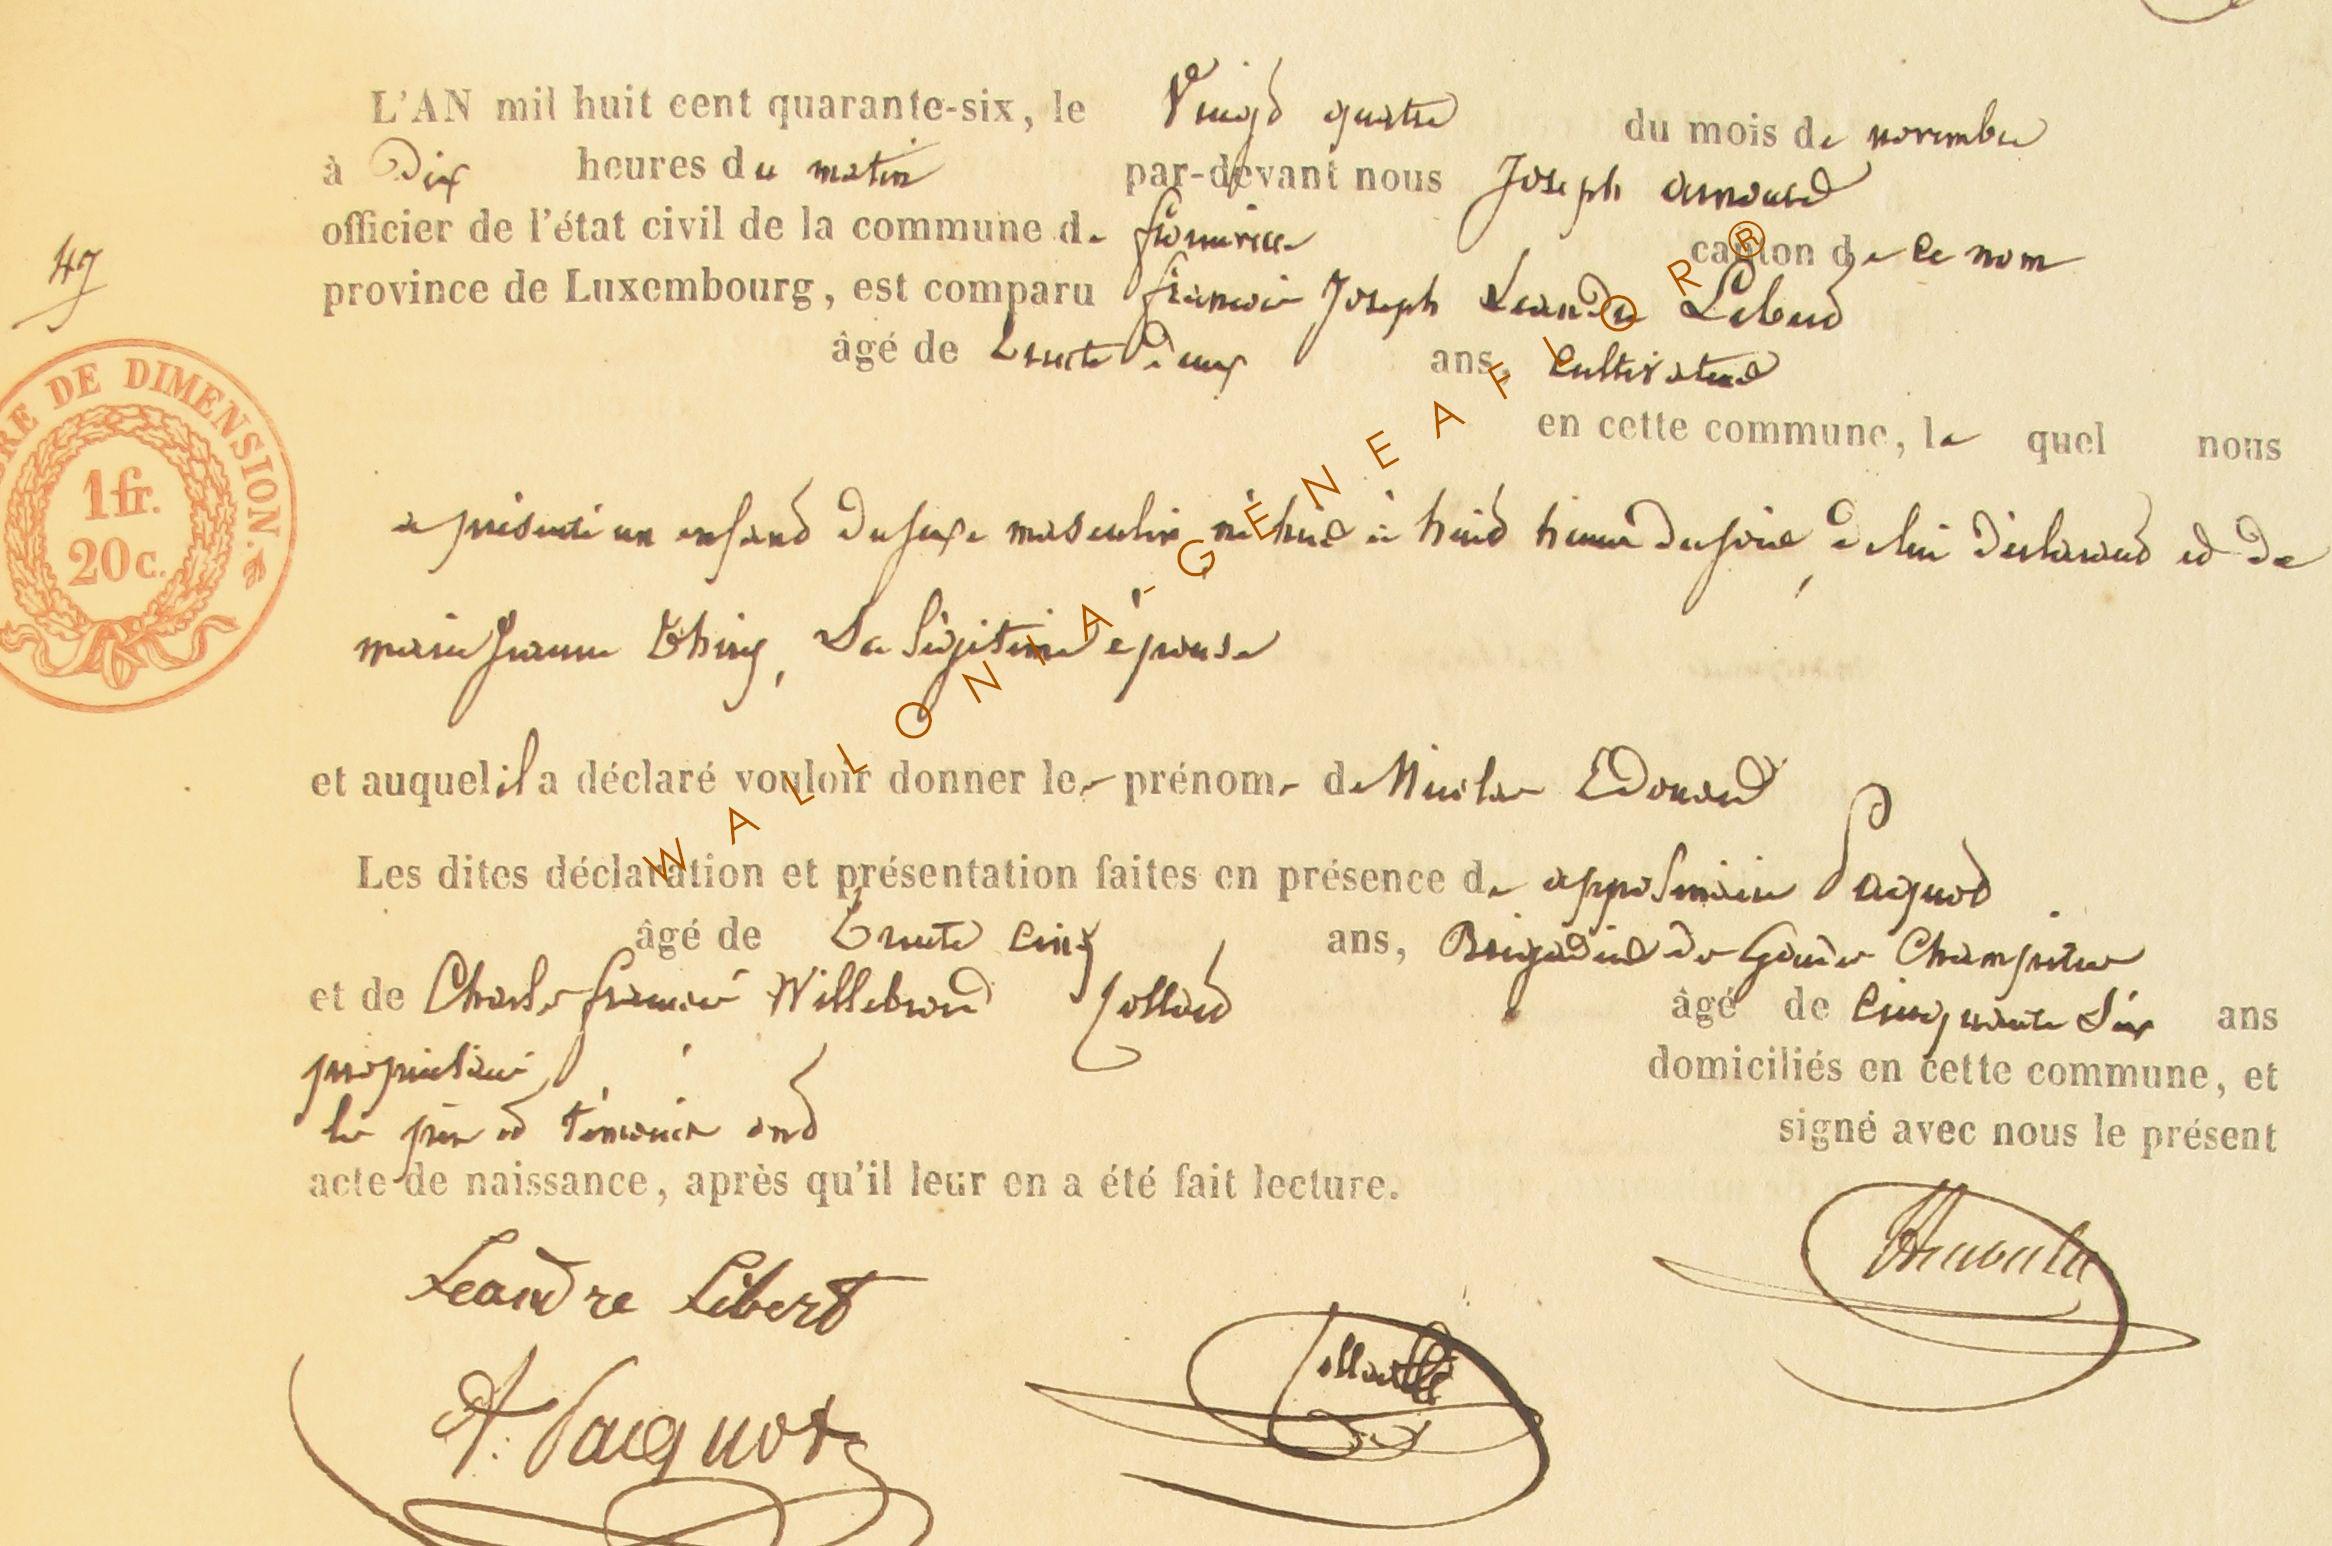 L'AN mil huit cent quarante-six, le Vingt quatre du mois de novembre
à Dix heures du matin par-devant nous Joseph arnould
officier de l'état civil de la commune de canton de ce nom
province de Luxembourg, est comparu françois Joseph Leandre Libert
âgé de trente deux ans, Cultivateur
en cette commune, le quel nous
47
TIMBRE DE DIMENSION.
1 fr.
20 c.
a présenté un enfant du sexe masculin né hier à huit heures du soir, de lui déclarant et de
marie jeanne Thiry, Sa légitime épouse
et auquel il a déclaré vouloir donner les prénoms de Nicolas Edouard
Les dites déclaration et présentation faites en présence de appolinaire Pacquot
âgé de trente cinq ans, Brigadier de Gardes Champetres
et de Charles françois Willebrord Collard âgé de cinquante Six ans
propriétaire domiciliés en cette commune, et
les père et témoins ont signé avec nous le présent
acte de naissance, après qu'il leur en a été fait lecture.
Leandre Libert
A. Pacquot
WALLONIA-GENEAFLOR®